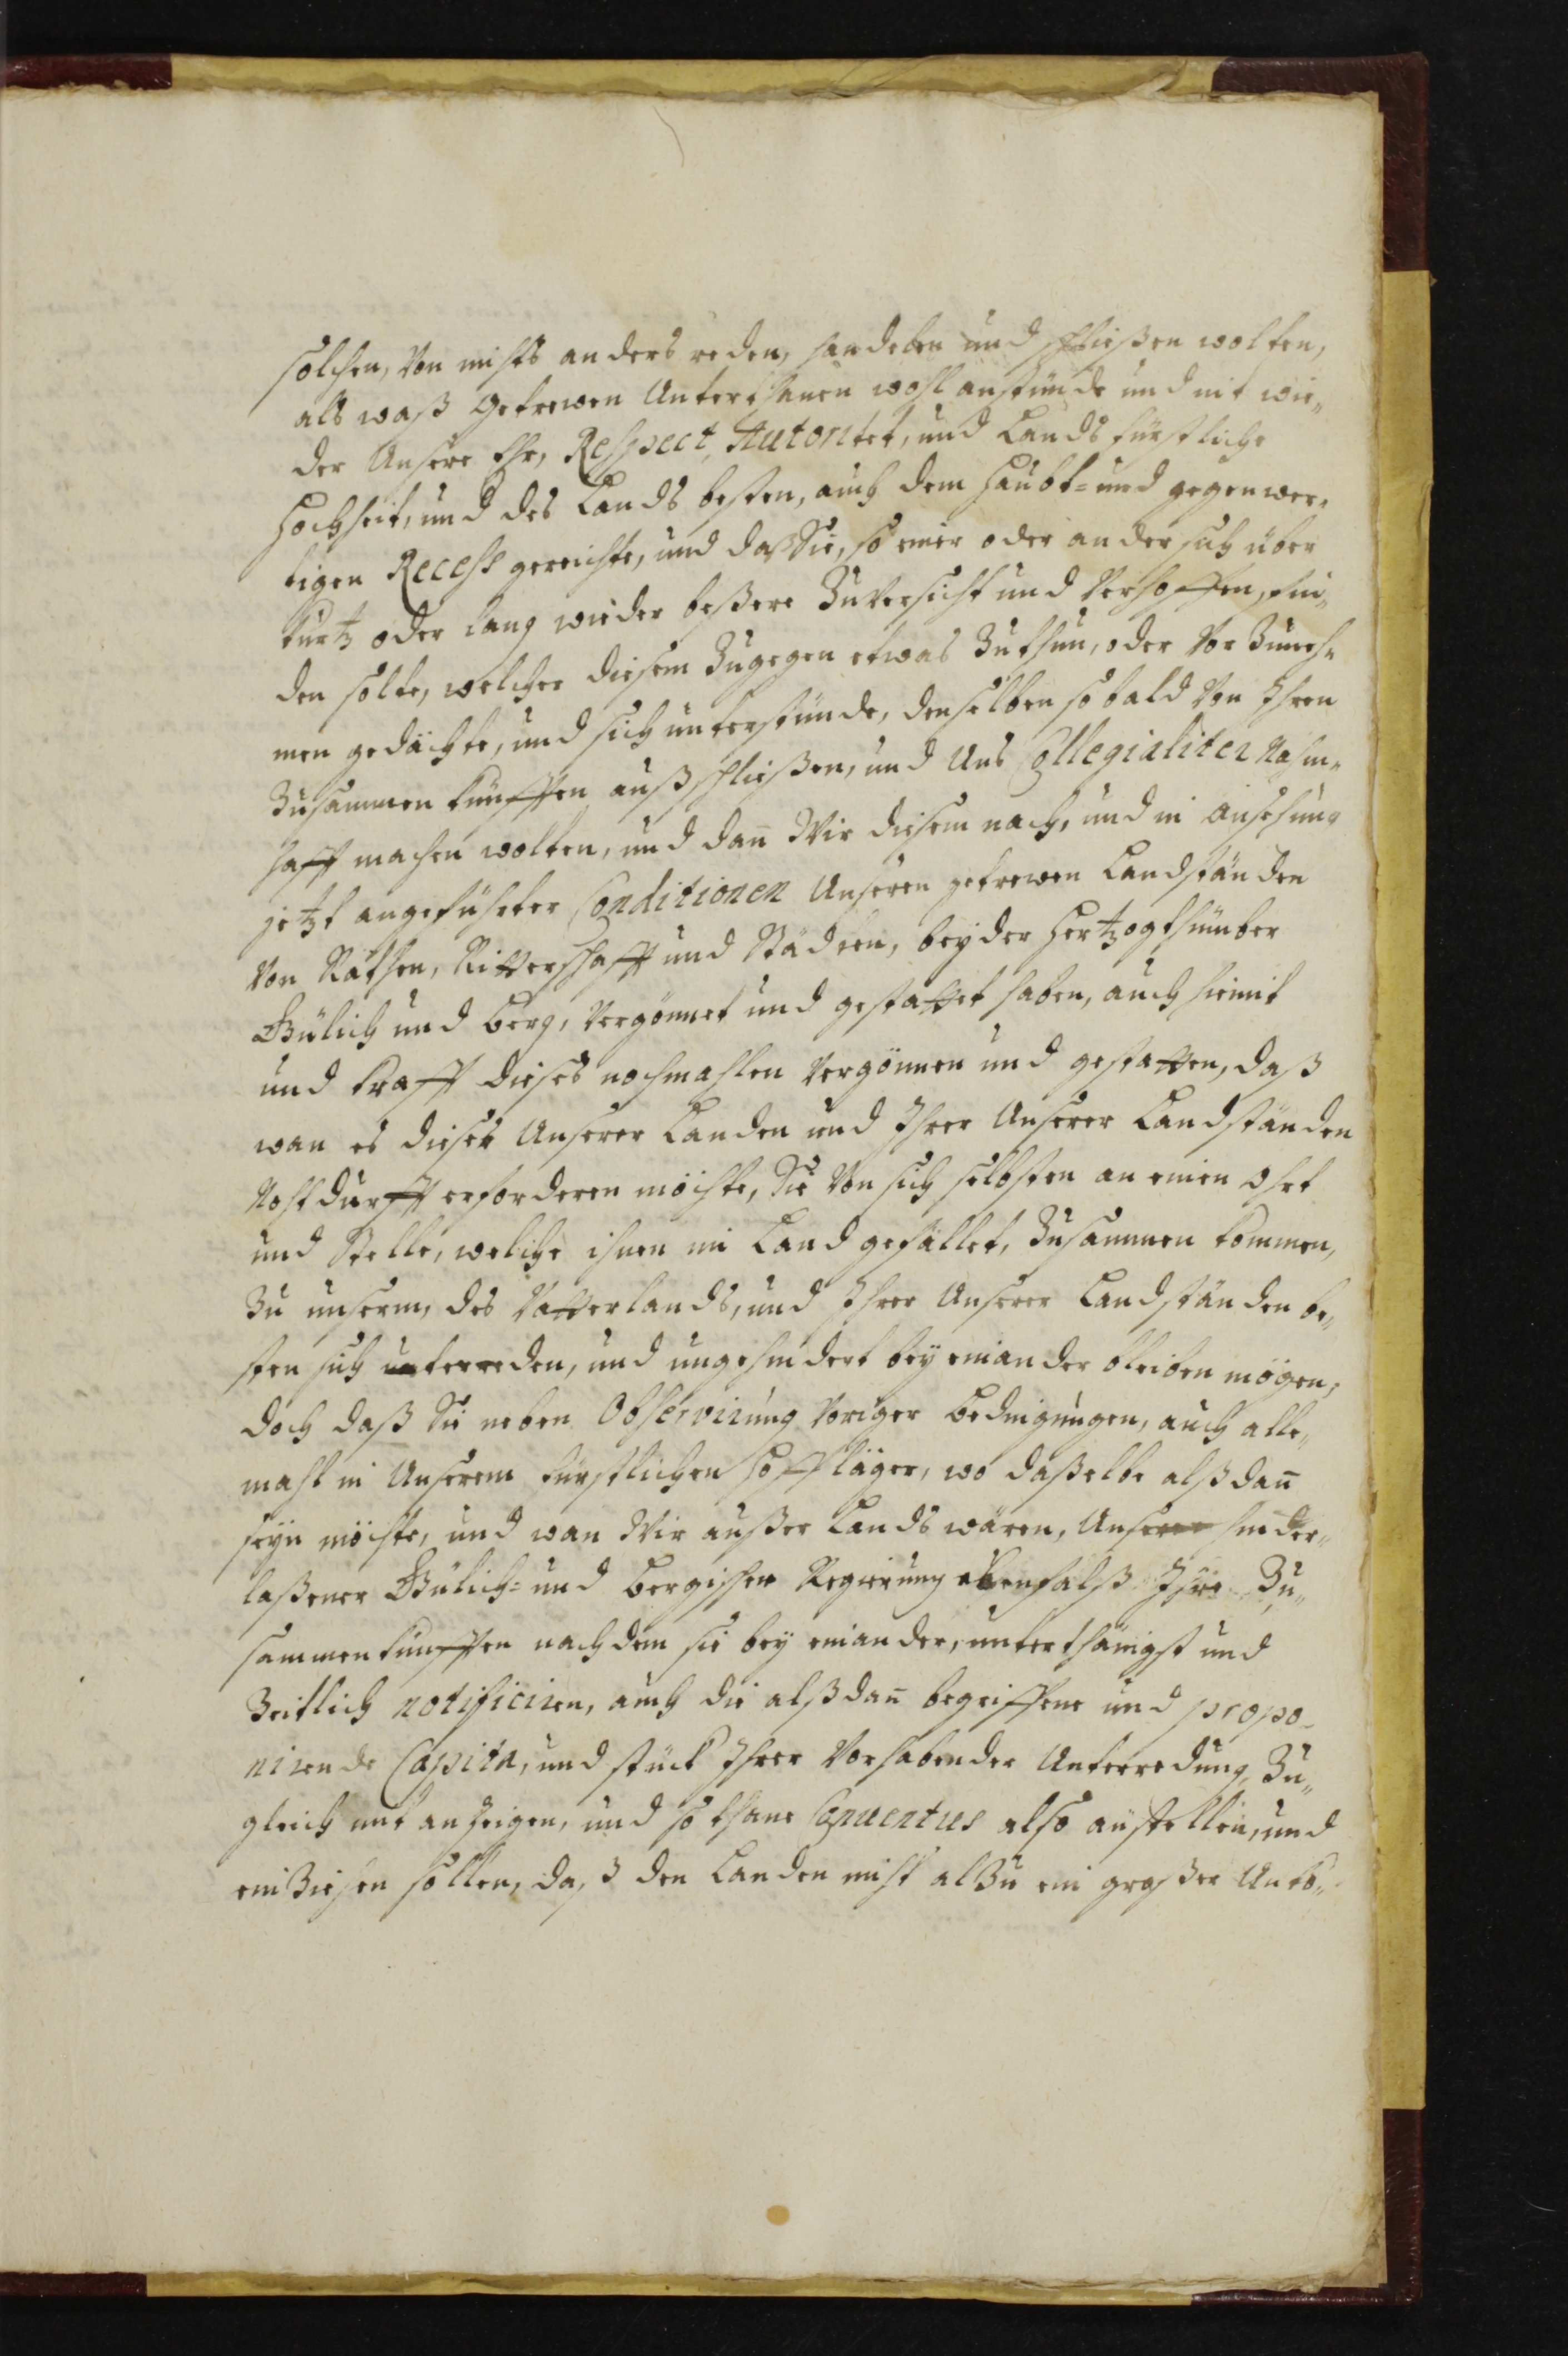 solchen, Von nichts anders reden, handelen und schließen wolten,
als waß getrewen Unterthanen wohl anstünde und nit wie„
der Unsere Ehr, Respect, Autoritet, und Lands fürstliche
Hochheit, und des Lands besten, auch dem Haubt= und gegenwer„
tigen Recess gereichte, und daß Sie, so einer oder ander sich über
kurtz oder lang wieder beßere Zuversicht und Verhoffen, fin„
den solte, welcher diesem Zugegen etwas Zuthun, oder Vor Zuneh„
men gedächte, und sich unterstünde, denselben so bald Von Ihren
Zusammen künfften außschließen, und Uns Collegialiter Nahm„
hafft machen wolten, und dan̄ Wir diesem nach, und in ansehung
jetzt angeführter Conditionen Unseren getrewen Landständen
Von Räthen, Ritterschafft und Städten, beyder Hertzogthümber
Gülich und Berg, Vergönnet und gestattet haben, auch hiemit
und krafft dieses nochmahlen Vergönnen und gestatten, daß
wan es dieser Unserer Landen und Ihrer Unserer Landständen
Nothdurfft erforderen möchte, Sie Von sich selbsten an einen Ohrt
und Stelle, welche ihnen im Land gefället, Zusammen kommen,
Zu unserm, des Vatterlands, und Ihrer Unserer Landständen be„
sten sich unterreden, und ungehindert bey einander bleiben mögen,
doch daß Sie neben Observirung Voriger Bedingungen, auch alle„
mahl in Unserem fürstlichen Hofflager, wo daßelbe alßdan̄
seyn möchte, und wan Wir außer Lands wären, Unserer hinder„
laßener Gülich= und Bergischer Regierung ebenfalß Ihre Zu„
sammenkünfften nachdem sie bey einander, unterthänigst und
Zeitlich notificiren, auch die alßdan̄ begriffene und propo„
nirende Capita, und stück Ihrer Vorhabender Unterredung, Zu„
gleich mit anzeigen, und so thane Conventus also anstellen, und
einziehen sollen, daß den Landen nicht alZu ein großer Unko„